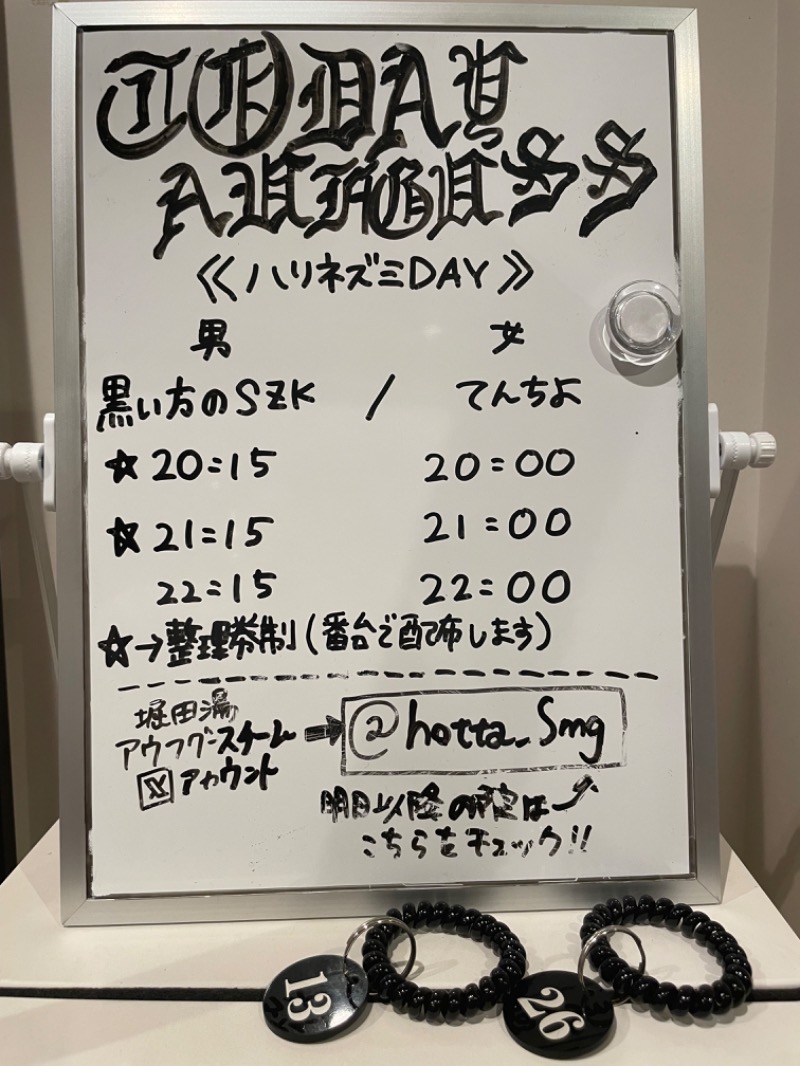 TODAY
AUFGUSS
≪ハリネズミDAY≫
男 女
黒い方のSZK / てんちよ
☆20:15 20:00
☆21:15 21:00
22:15 22:00
☆→整理券制(番台で配布します)
堀田湯
アウフグースチーム
X アカウント
➡ @hotta_Smg
明日以降の予定は
こちらをチェック!!
13
26